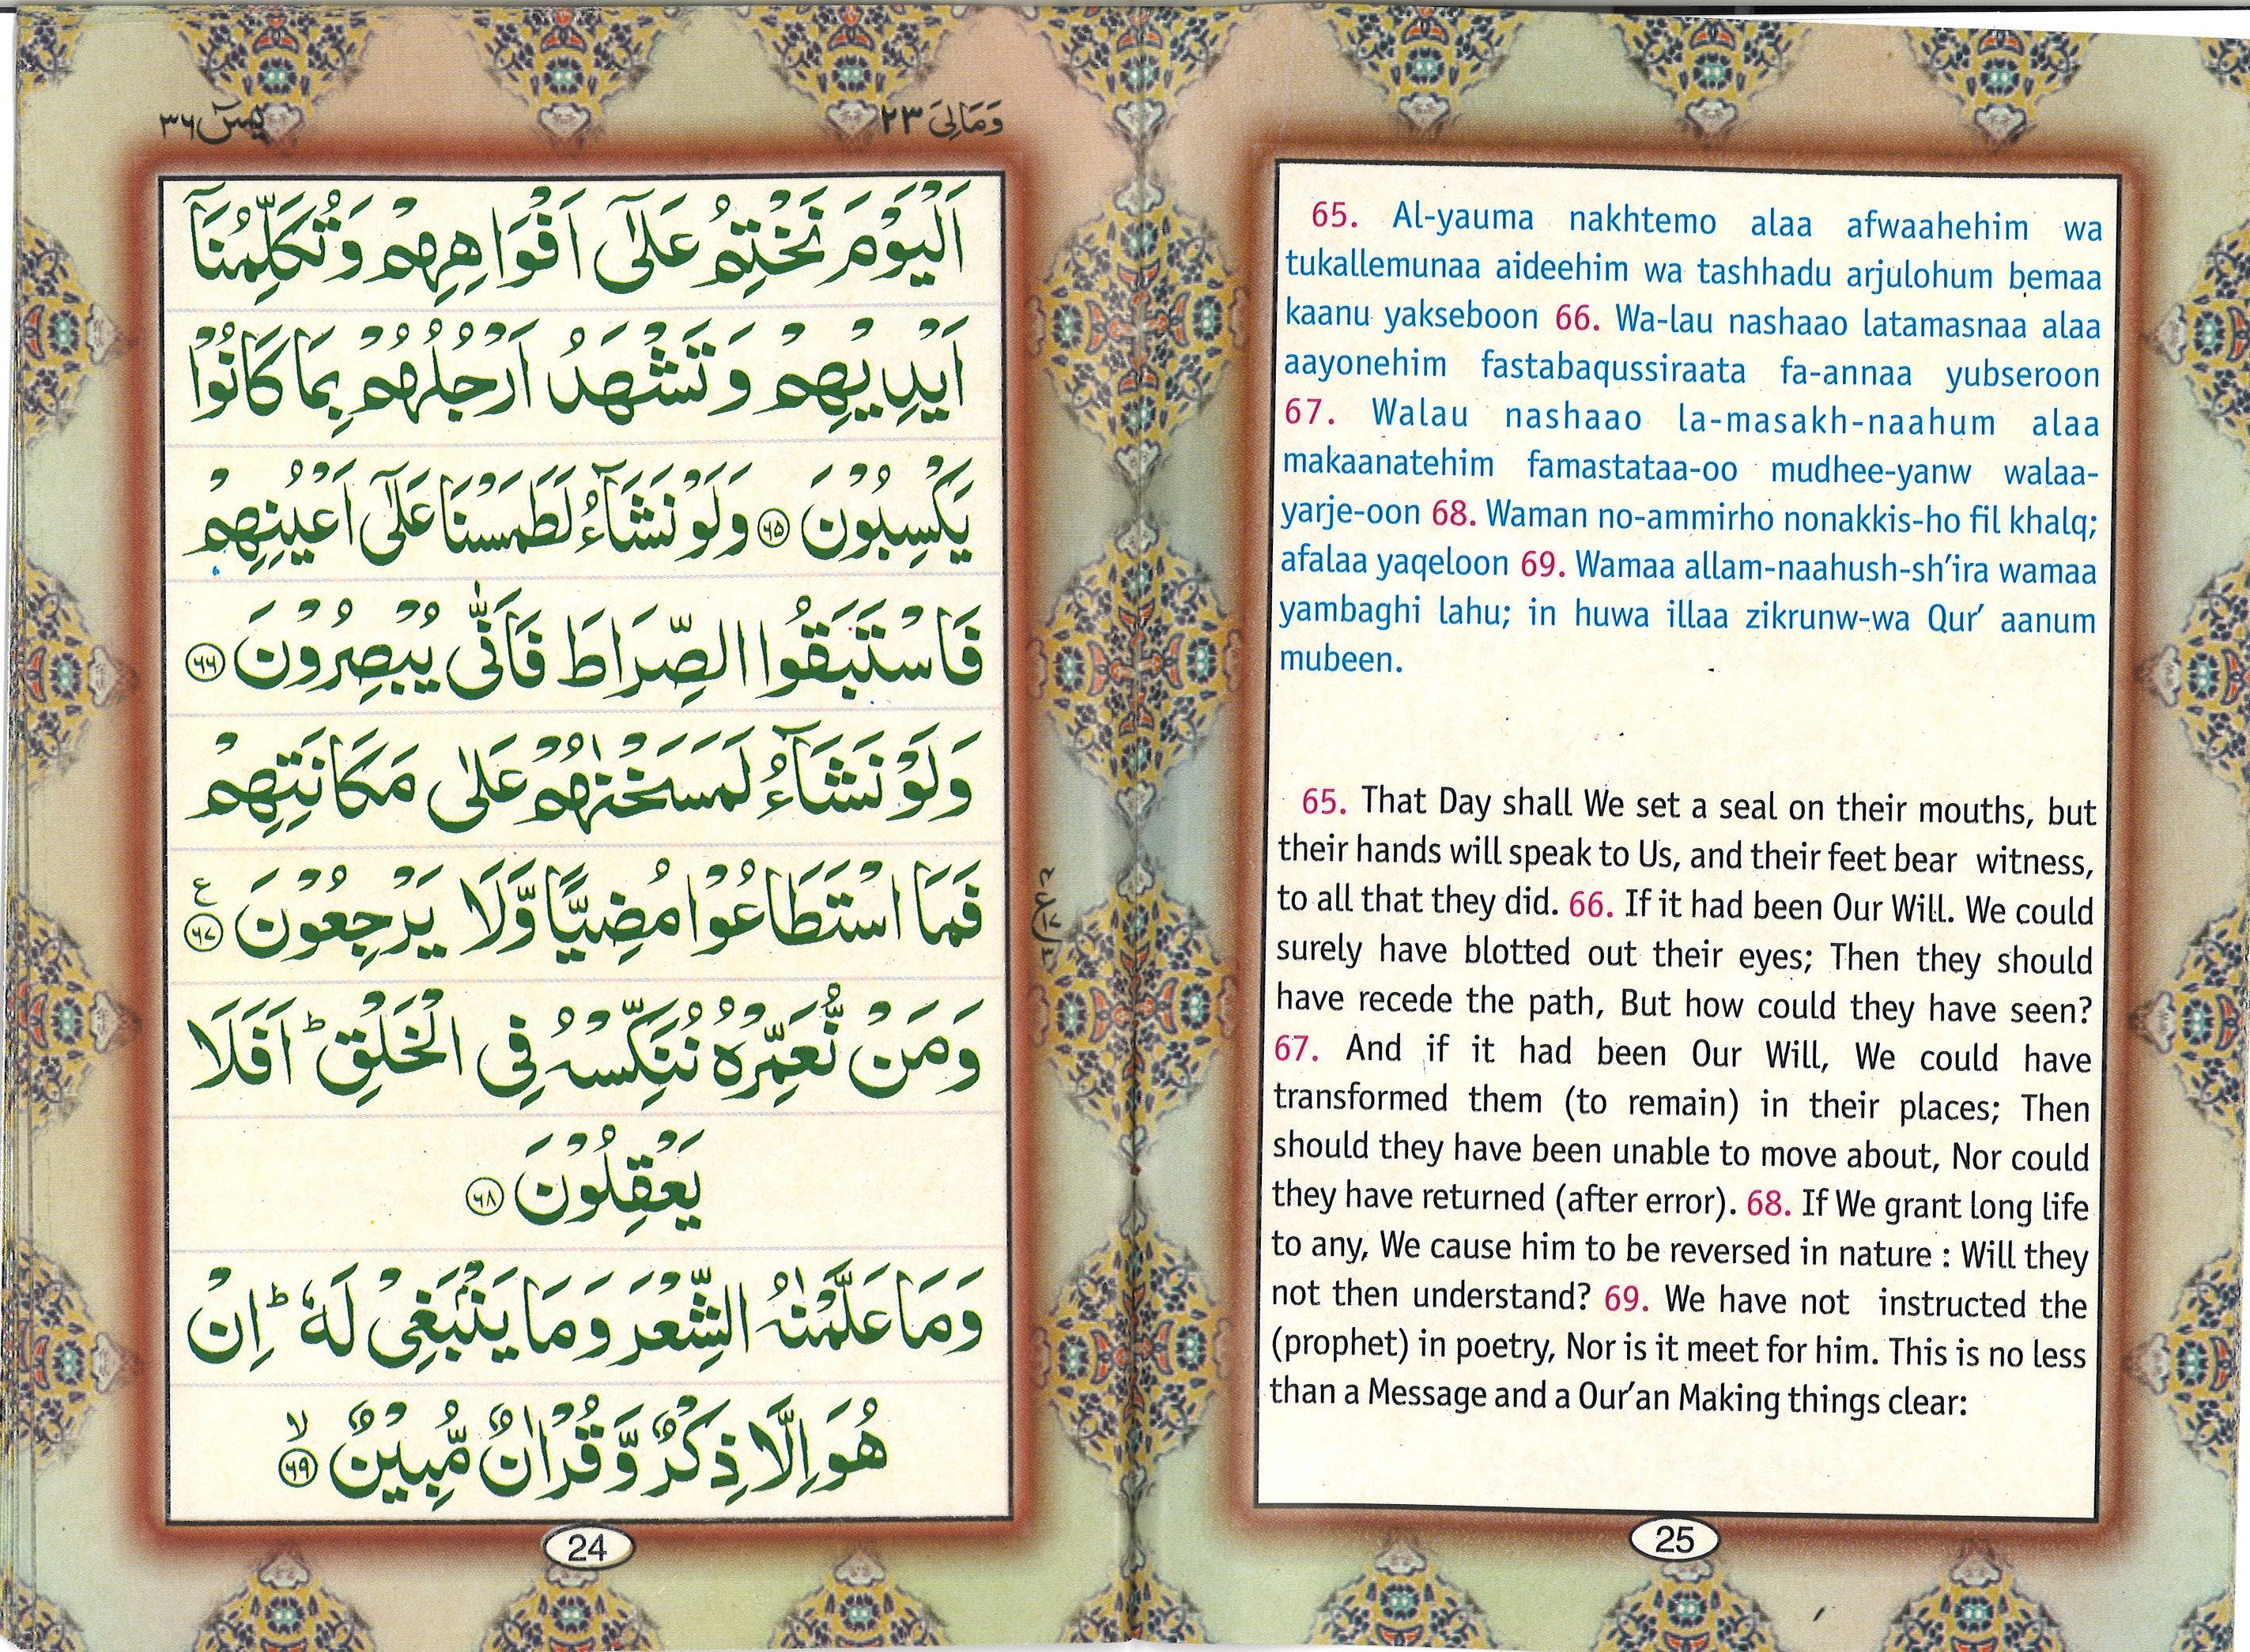 يٰسٓ ٣٦
وَمَالِیَ ٢٣
اَلْیَوْمَ نَخْتِمُ عَلٰۤی اَفْوَاهِهِمْ وَتُكَلِّمُنَاۤ
اَیْدِیْهِمْ وَتَشْهَدُ اَرْجُلُهُمْ بِمَا كَانُوْا
یَكْسِبُوْنَ ۶۵ وَلَوْ نَشَآءُ لَطَمَسْنَا عَلٰۤی اَعْیُنِهِمْ
فَاسْتَبَقُوا الصِّرَاطَ فَاَنّٰی یُبْصِرُوْنَ ۶۶
وَلَوْ نَشَآءُ لَمَسَخْنٰهُمْ عَلٰی مَكَانَتِهِمْ
فَمَا اسْتَطَاعُوْا مُضِیًّا وَّلَا یَرْجِعُوْنَ ۶۷ ع
وَمَنْ نُّعَمِّرْهُ نُنَكِّسْهُ فِی الْخَلْقِ ؕ اَفَلَا
یَعْقِلُوْنَ ۶۸
وَمَا عَلَّمْنٰهُ الشِّعْرَ وَمَا یَنْۢبَغِیْ لَهٗ ؕ اِنْ
هُوَ اِلَّا ذِكْرٌ وَّقُرْاٰنٌ مُّبِیْنٌ ۶۹ ۙ
24
65. Al-yauma nakhtemo alaa afwaahehim wa
tukallemunaa aideehim wa tashhadu arjulohum bemaa
kaanu yakseboon 66. Wa-lau nashaao latamasnaa alaa
aayonehim fastabaqussiraata fa-annaa yubseroon
67. Walau nashaao la-masakh-naahum alaa
makaanatehim famastataa-oo mudhee-yanw walaa-
yarje-oon 68. Waman no-ammirho nonakkis-ho fil khalq;
afalaa yaqeloon 69. Wamaa allam-naahush-sh'ira wamaa
yambaghi lahu; in huwa illaa zikrunw-wa Qur' aanum
mubeen.
65. That Day shall We set a seal on their mouths, but
their hands will speak to Us, and their feet bear witness,
to all that they did. 66. If it had been Our Will. We could
surely have blotted out their eyes; Then they should
have recede the path, But how could they have seen?
67. And if it had been Our Will, We could have
transformed them (to remain) in their places; Then
should they have been unable to move about, Nor could
they have returned (after error). 68. If We grant long life
to any, We cause him to be reversed in nature : Will they
not then understand? 69. We have not instructed the
(prophet) in poetry, Nor is it meet for him. This is no less
than a Message and a Our'an Making things clear:
25